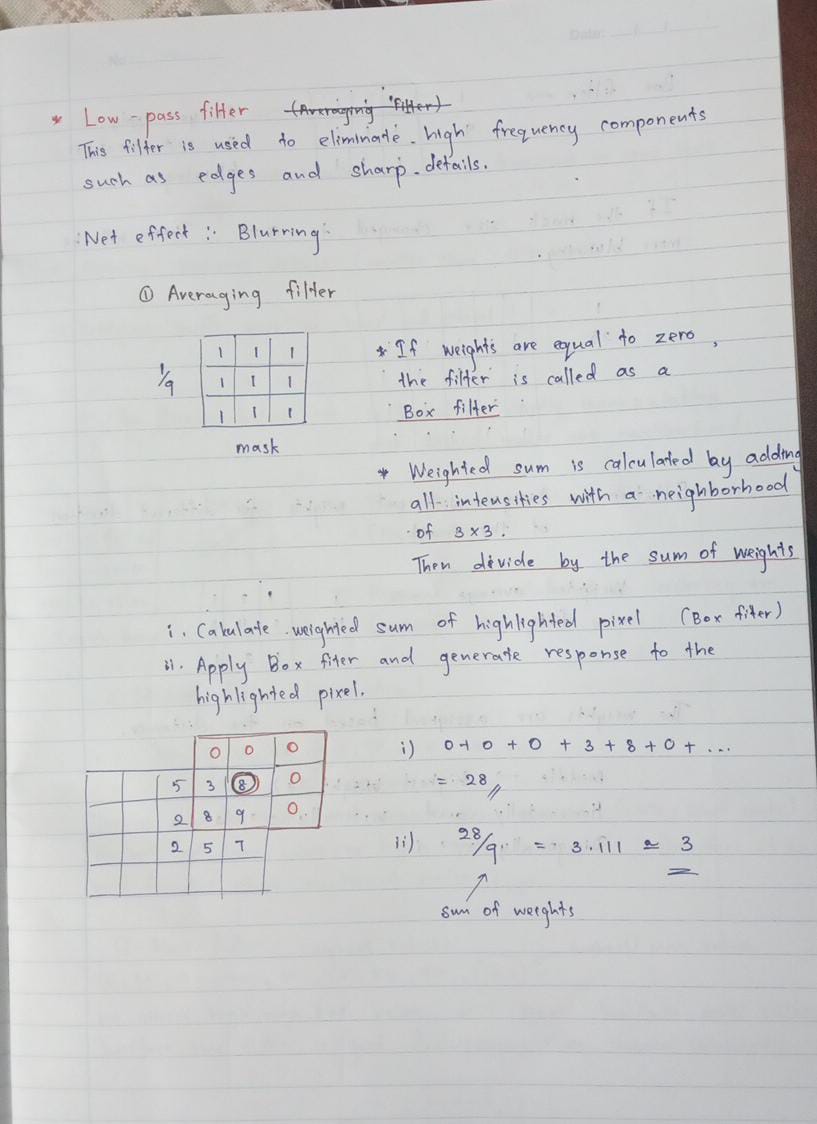 Date: __/__/__
No
* Low-pass filter (Averaging Filter)
This filter is used to eliminate high frequency components
such as edges and sharp details.
Net effect :- Blurring
① Averaging filter
1/9
1 1 1
1 1 1
1 1 1
mask
* If weights are equal to zero,
the filter is called as a
Box filter
* Weighted sum is calculated by adding
all intensities with a neighborhood
of 3×3.
Then divide by the sum of weights
i. Calculate weighted sum of highlighted pixel (Box filter)
ii. Apply Box filter and generate response to the
highlighted pixel.
0 0 0
5 3 8 0
2 8 9 0
2 5 7
i) 0+0+0+3+8+0+...
= 28
ii) 28/9 = 3.111 ≃ 3
sum of weights